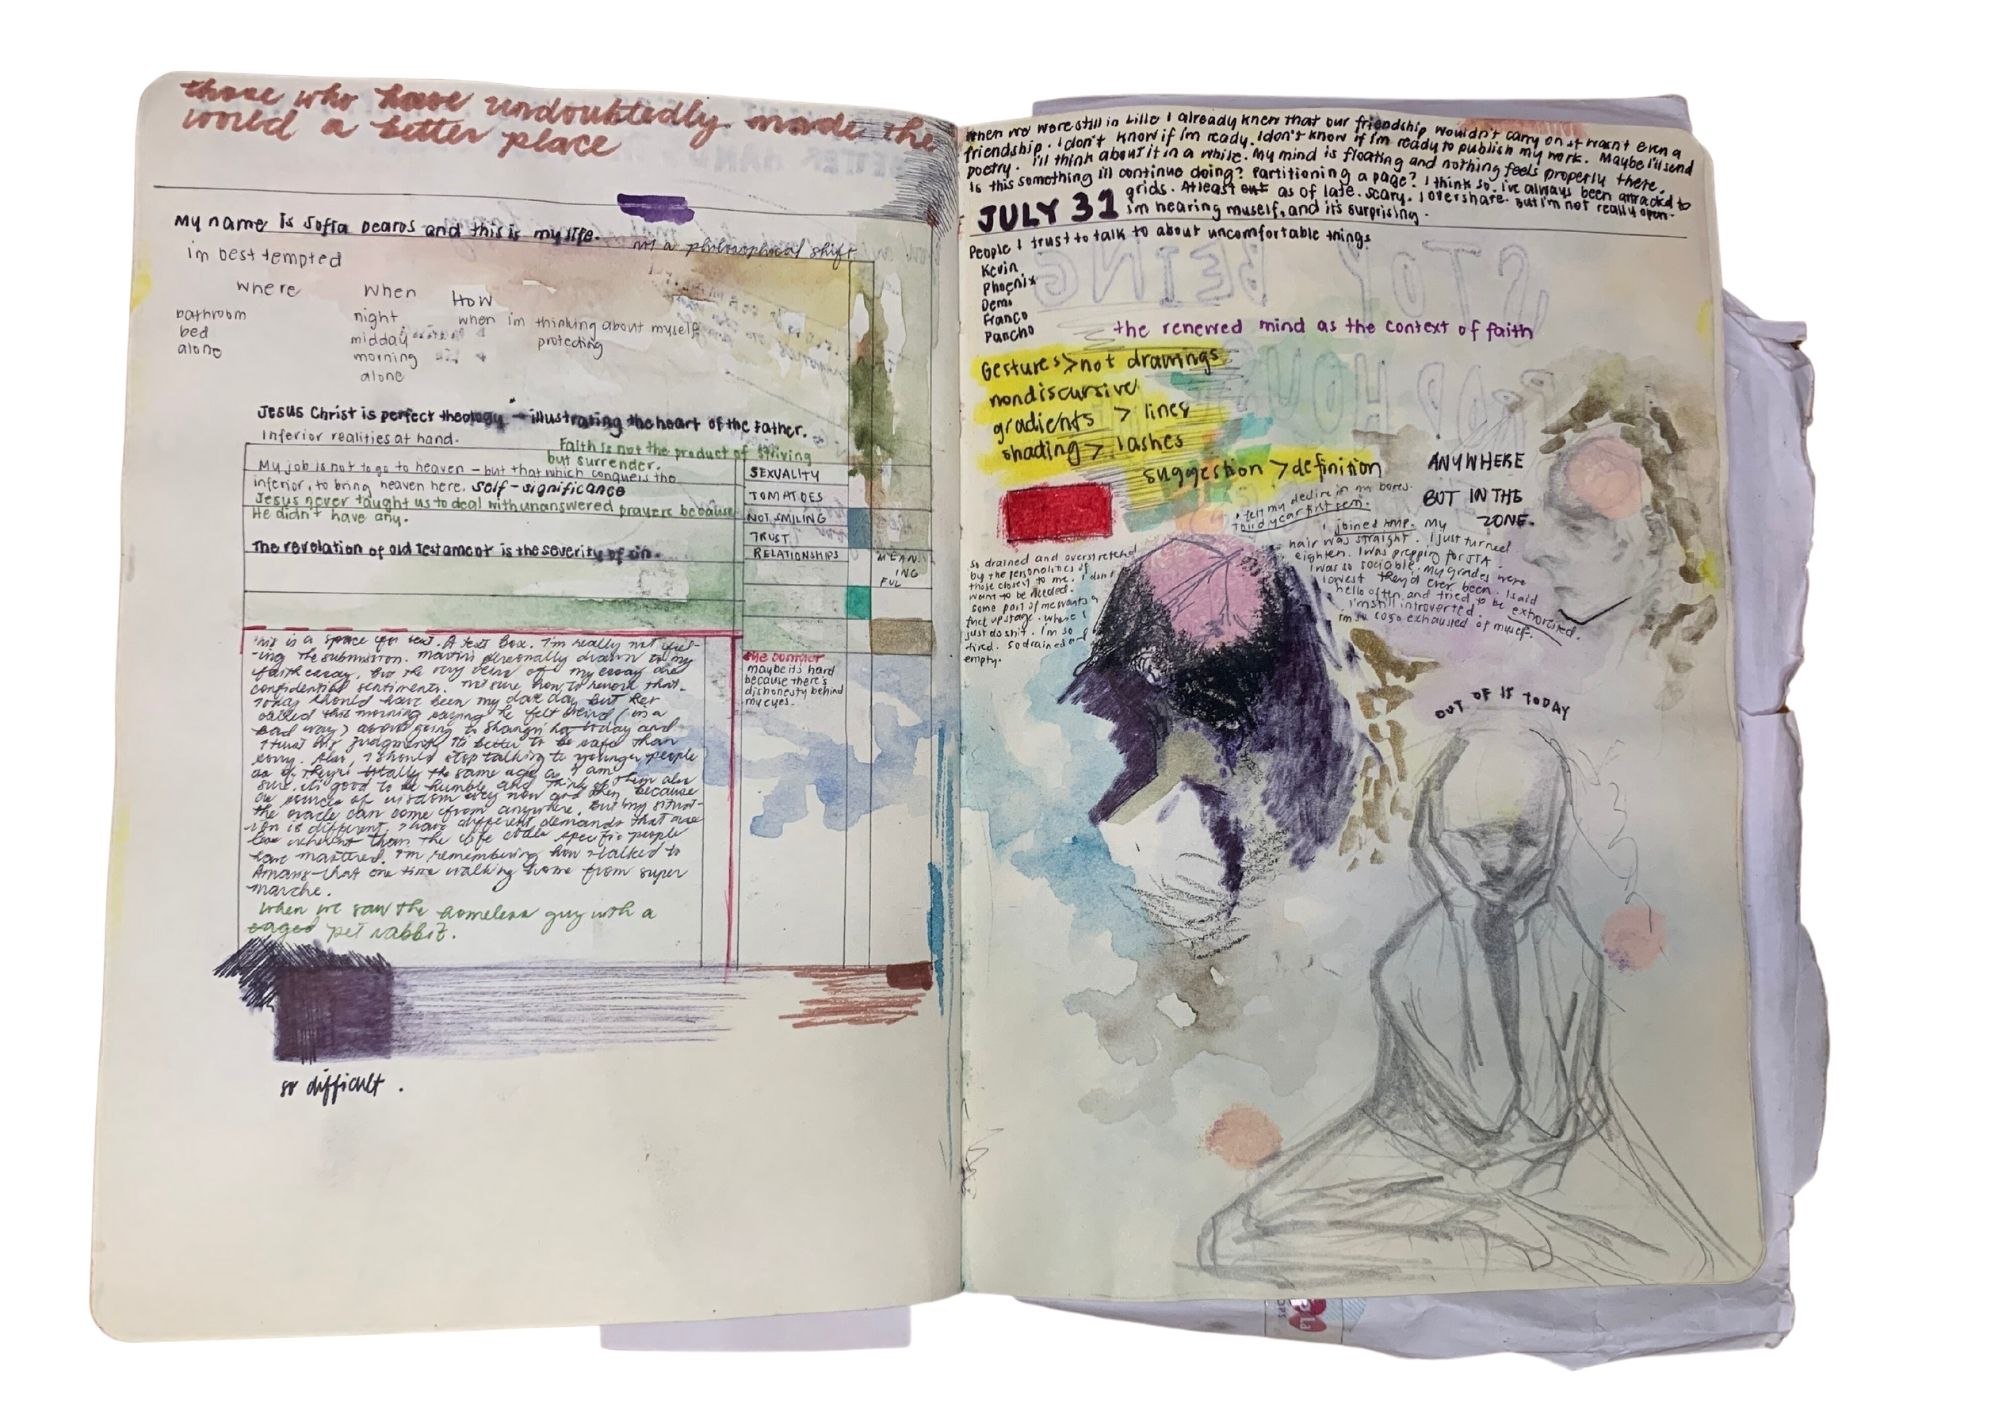 those who have undoubtedly made the
world a better place
My name is Sofia Dearos and this is my life.
not a philosophical shift
im best tempted
where
when
how
bathroom
bed
alone
night
midday
morning
alone
when im thinking about myself
protecting
Jesus Christ is perfect theology illustrating the heart of the Father.
Inferior realities at hand.
Faith is not the product of striving
but surrender.
My job is not to go to heaven - but that which conquers the
inferior, to bring heaven here. self-significance
Jesus never taught us to deal with unanswered prayers because
He didn't have any.
The revelation of Old Testament is the severity of sin.
SEXUALITY
TOMATOES
NOT SMILING
TRUST
RELATIONSHIPS
MEAN.
ING
FUL
This is a space for text. A text box. I'm really not
-ing the submission. personally drawn to my
faith essay, but the very of my essay are
confidential sentiments. Not sure how to that.
Today should have been my day but
called this morning saying he felt weird (in a
bad way) about going to Shangri la today and
I trust his judgment. It's better to be safe than
sorry. Also, I should stop talking to younger people
as if they're totally the same age as I am.
sure, it's good to be humble and think because
sources of wisdom every now and then
the oracle can come from anywhere, but my situat-
-ion is different, I have different demands that are
inherent than the life specific people
have mastered. I'm remembering how I talked to
that one time walking home from super
marche.
When we saw the homeless guy with a
caged pet rabbit.
the corner
maybe its hard
because there's
dishonesty behind
my eyes.
so difficult.
When we were still in Lille I already knew that our friendship wouldn't carry on. It wasn't even a
friendship. I don't know if I'm ready. I don't know if I'm ready to publish my work. Maybe I'll send
poetry. I'll think about it in a while. My mind is floating and nothing feels properly there.
Is this something I'll continue doing? Partitioning a page? I think so. I've always been attracted to
grids. Atleast as of late. Scary. I overshare. But I'm not really open.
JULY 31
I'm hearing myself, and it's surprising.
People I trust to talk to about uncomfortable things
Kevin
Phoenix
Demi
Franco
Pancho
STOP BEING
the renewed mind as the context of faith
Gestures > not drawings
nondiscursive
gradients > lines
shading > lashes
suggestion > definition
ANYWHERE
BUT IN THE
ZONE.
I felt my decline in my bones.
Third year first sem.
I joined AMP. My
hair was straight. I just turned
eighteen. I was prepping for JTA.
I was so sociable. My grades were
lowest they'd ever been. I said
hello often and tried to be exhorted.
I'm still introverted.
im so so so exhausted of myself.
so drained and overstretched
by the personalities of
those closest to me. I don't
want to be needed.
some part of me wants a
fact upstage. where I
just do shit. I'm so
tired. so drained and
empty.
OUT OF IT TODAY